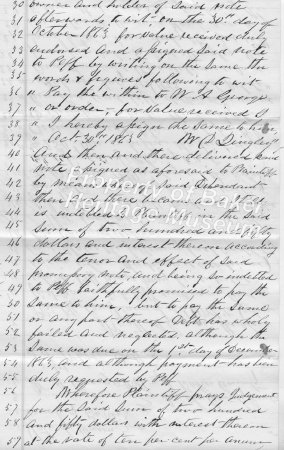 30 owner and holder of said note
31 afterwards to wit on the 30th day of
32 October 1863 for value received duly
33 endorsed and assigned said note
34 to Pltff by writing on the same the
35 words & figures following to wit
36 " Pay the within to W. A. George
37 " or order, for value received
38 " I hereby assign the same to him,
39 " Oct 30th 1863
40 And then and there delivered said
41 note assigned as aforesaid to Plaintiff
42 by means Defendant
43 then and there became
44 is indebted to Plaintiff in the said
45 sum of two hundred and fifty
46 dollars and interest thereon according
47 to the tenor and effect of said
48 promissory note, and being so indebted
49 to Pltff faithfully promised to pay the
50 same to him, but to pay the same
51 or any part thereof Debt. has wholly
52 failed and neglected, although the
53 same was due on the 1st day of December
54 1863 and although payment has been
55 duly requested by Pltff
56 Wherefore Plaintiff prays Judgement
57 for the said sum of two hundred
58 and fifty dollars with interest thereon
59 at the rate of ten per cent per annum